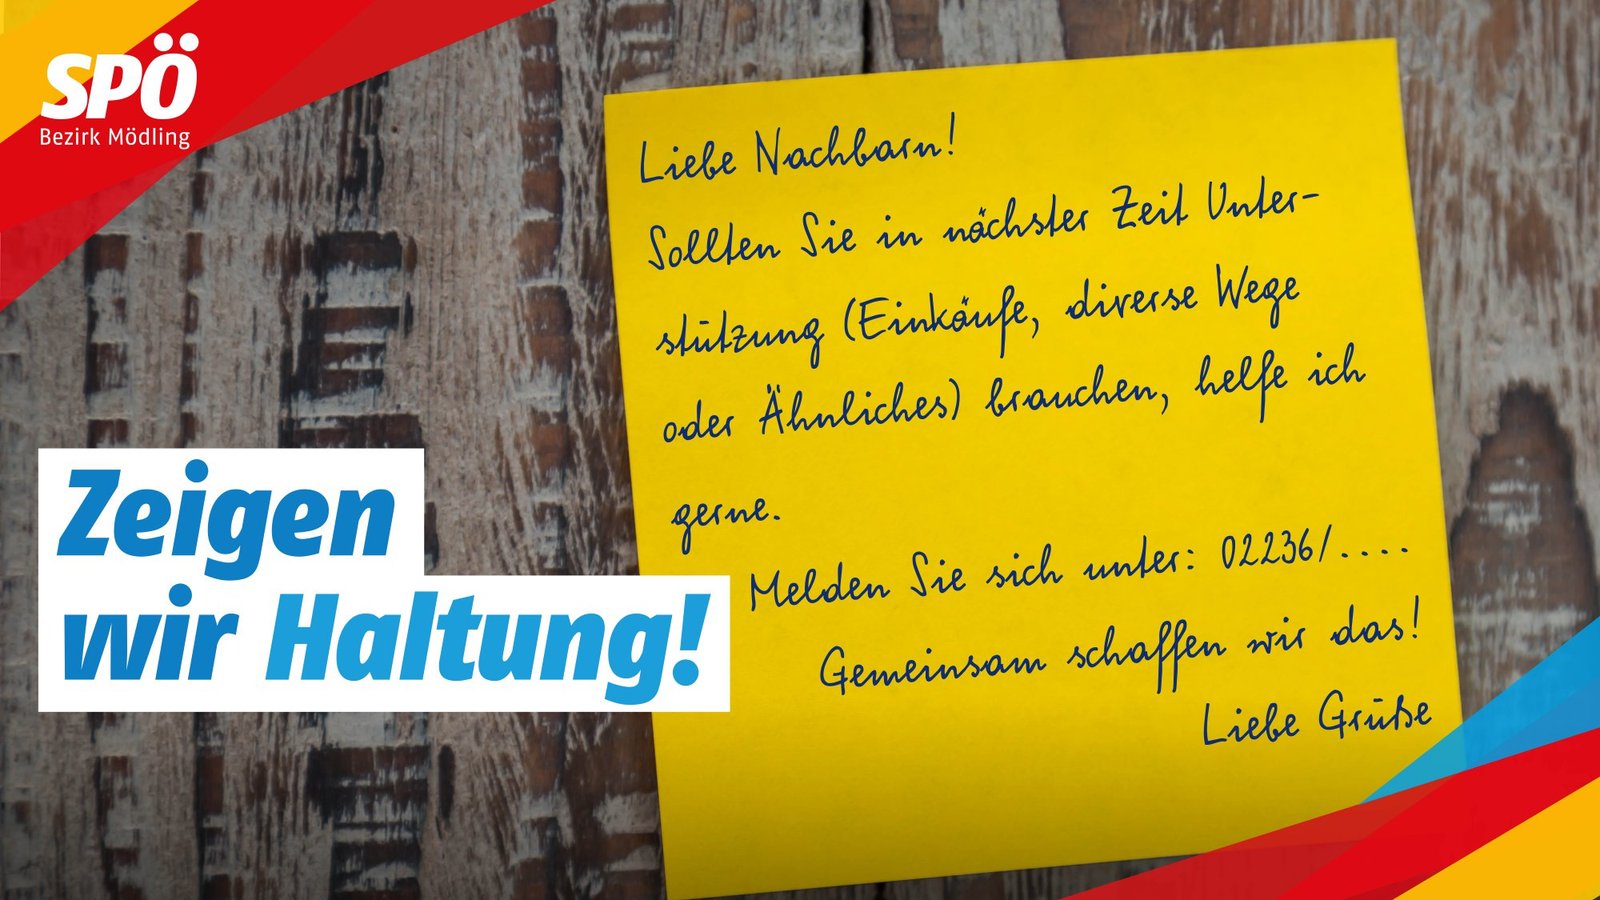 SPÖ
Bezirk Mödling
Zeigen
wir Haltung!
Liebe Nachbarn!
Sollten Sie in nächster Zeit Unter-
stützung (Einkäufe, diverse Wege
oder Ähnliches) brauchen, helfe ich
gerne.
Melden Sie sich unter: 02236/....
Gemeinsam schaffen wir das!
Liebe Grüße